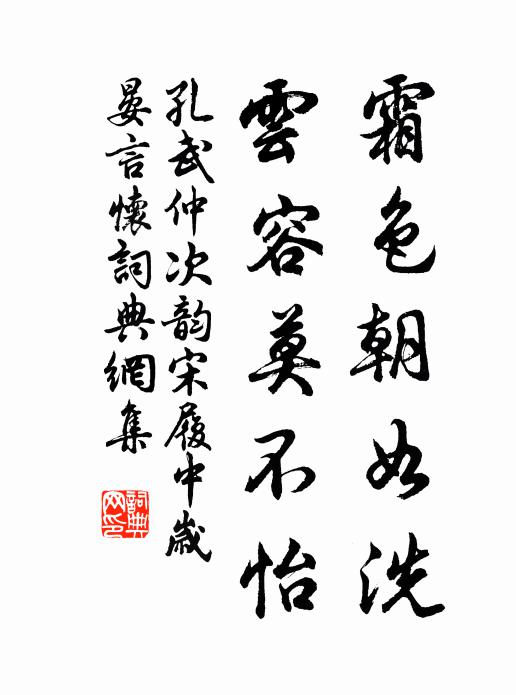 霜色朝如洗
雲容莫不怡
孔武仲次韵宋履中歲
晏言懷詞典網集
詞典
网印